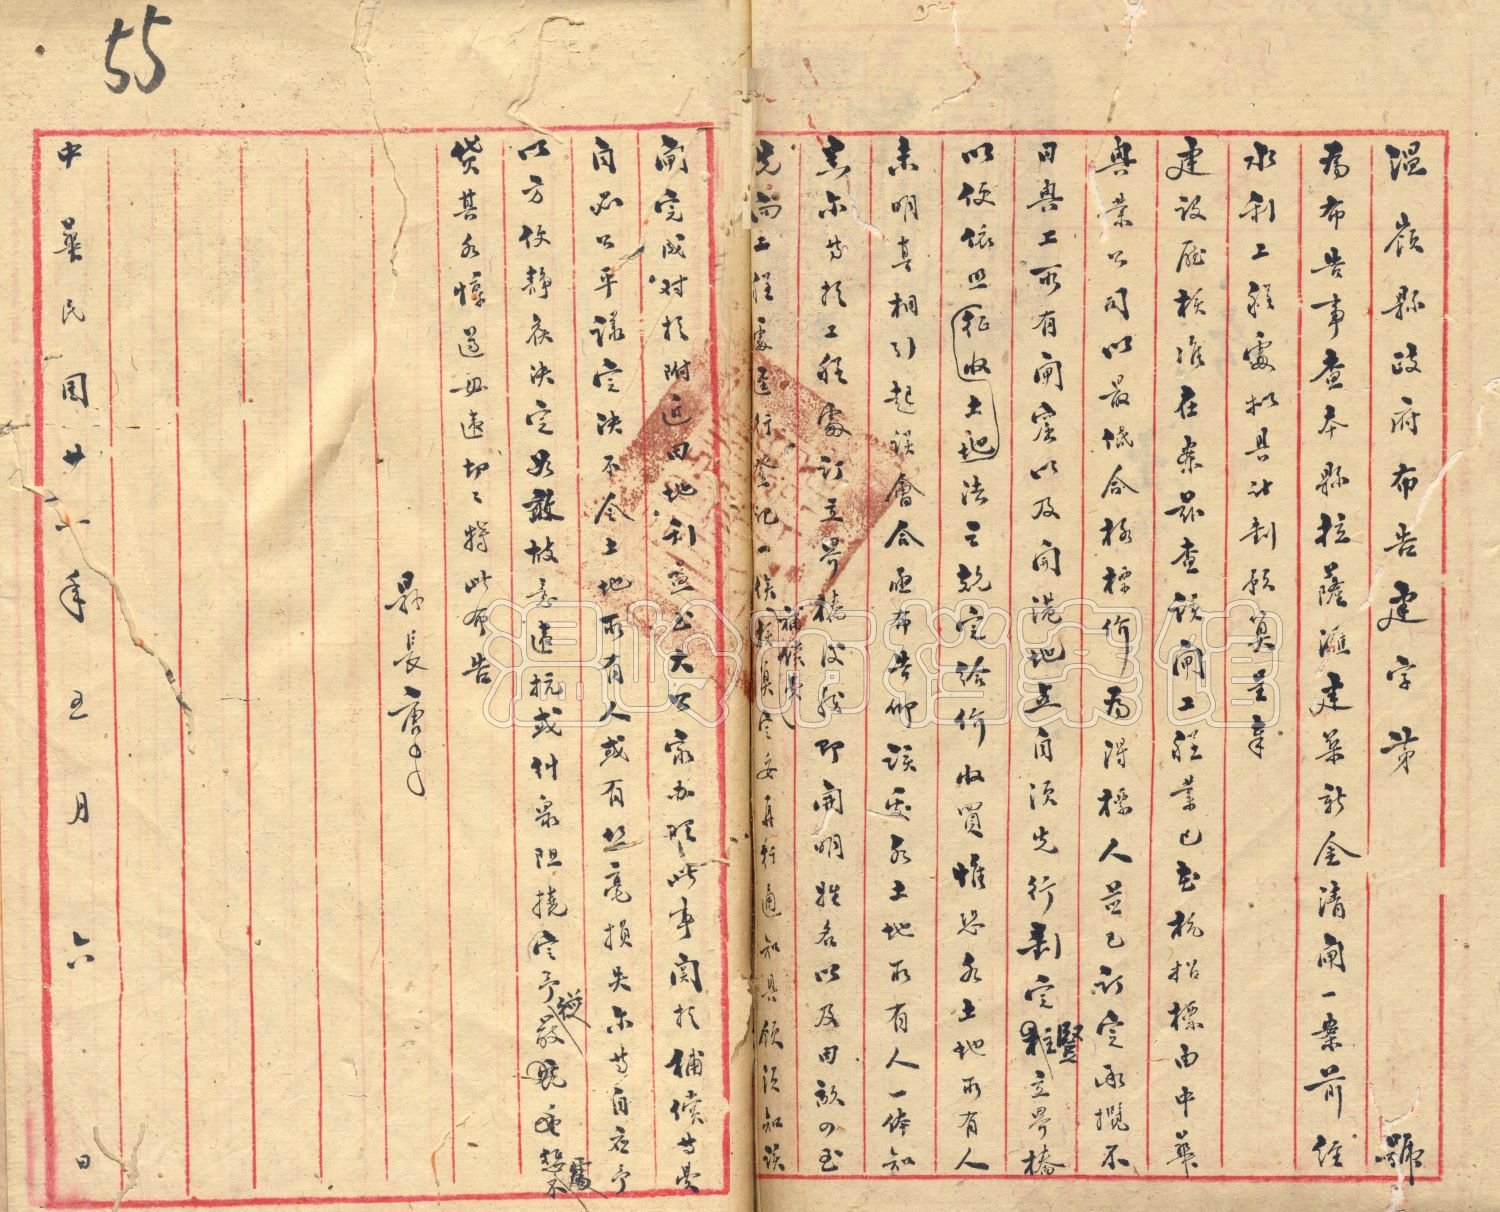 55
溫嶺縣政府布告建字第　　號
為布告事查本縣拉薩滙建築新金清閘一案前經
水利工程處擬具計劃預算呈奉
建設廳核准在案茲查該閘工程業已在杭招標由中華
興業公司以最低合格標價為得標人並已訂定承攬不
日興工所有閘窒以及閘港地立自須先行劃定豎立界樁
以便依照征收土地法之規定給價收買惟恐各土地所有人
未明真相引起誤會合亟布告仰該處各土地所有人一體知
悉爾等於工程處訂立界樁後務即開明姓名以及田畝
先向工程處登記一俟補償費算定妥再行通知具領須知該
閘完成對於附近田地利益至大公家辦理此事關於補償等費
自必公平議定決不令土地所有人或有絲毫損失爾等自應予
以方便靜候決定如敢故意違抗或什眾阻撓定予從嚴懲處不
貸其各懍遵毋違切切特此布告
縣長唐
中華民國廿一年五月六日
温岭市档案馆